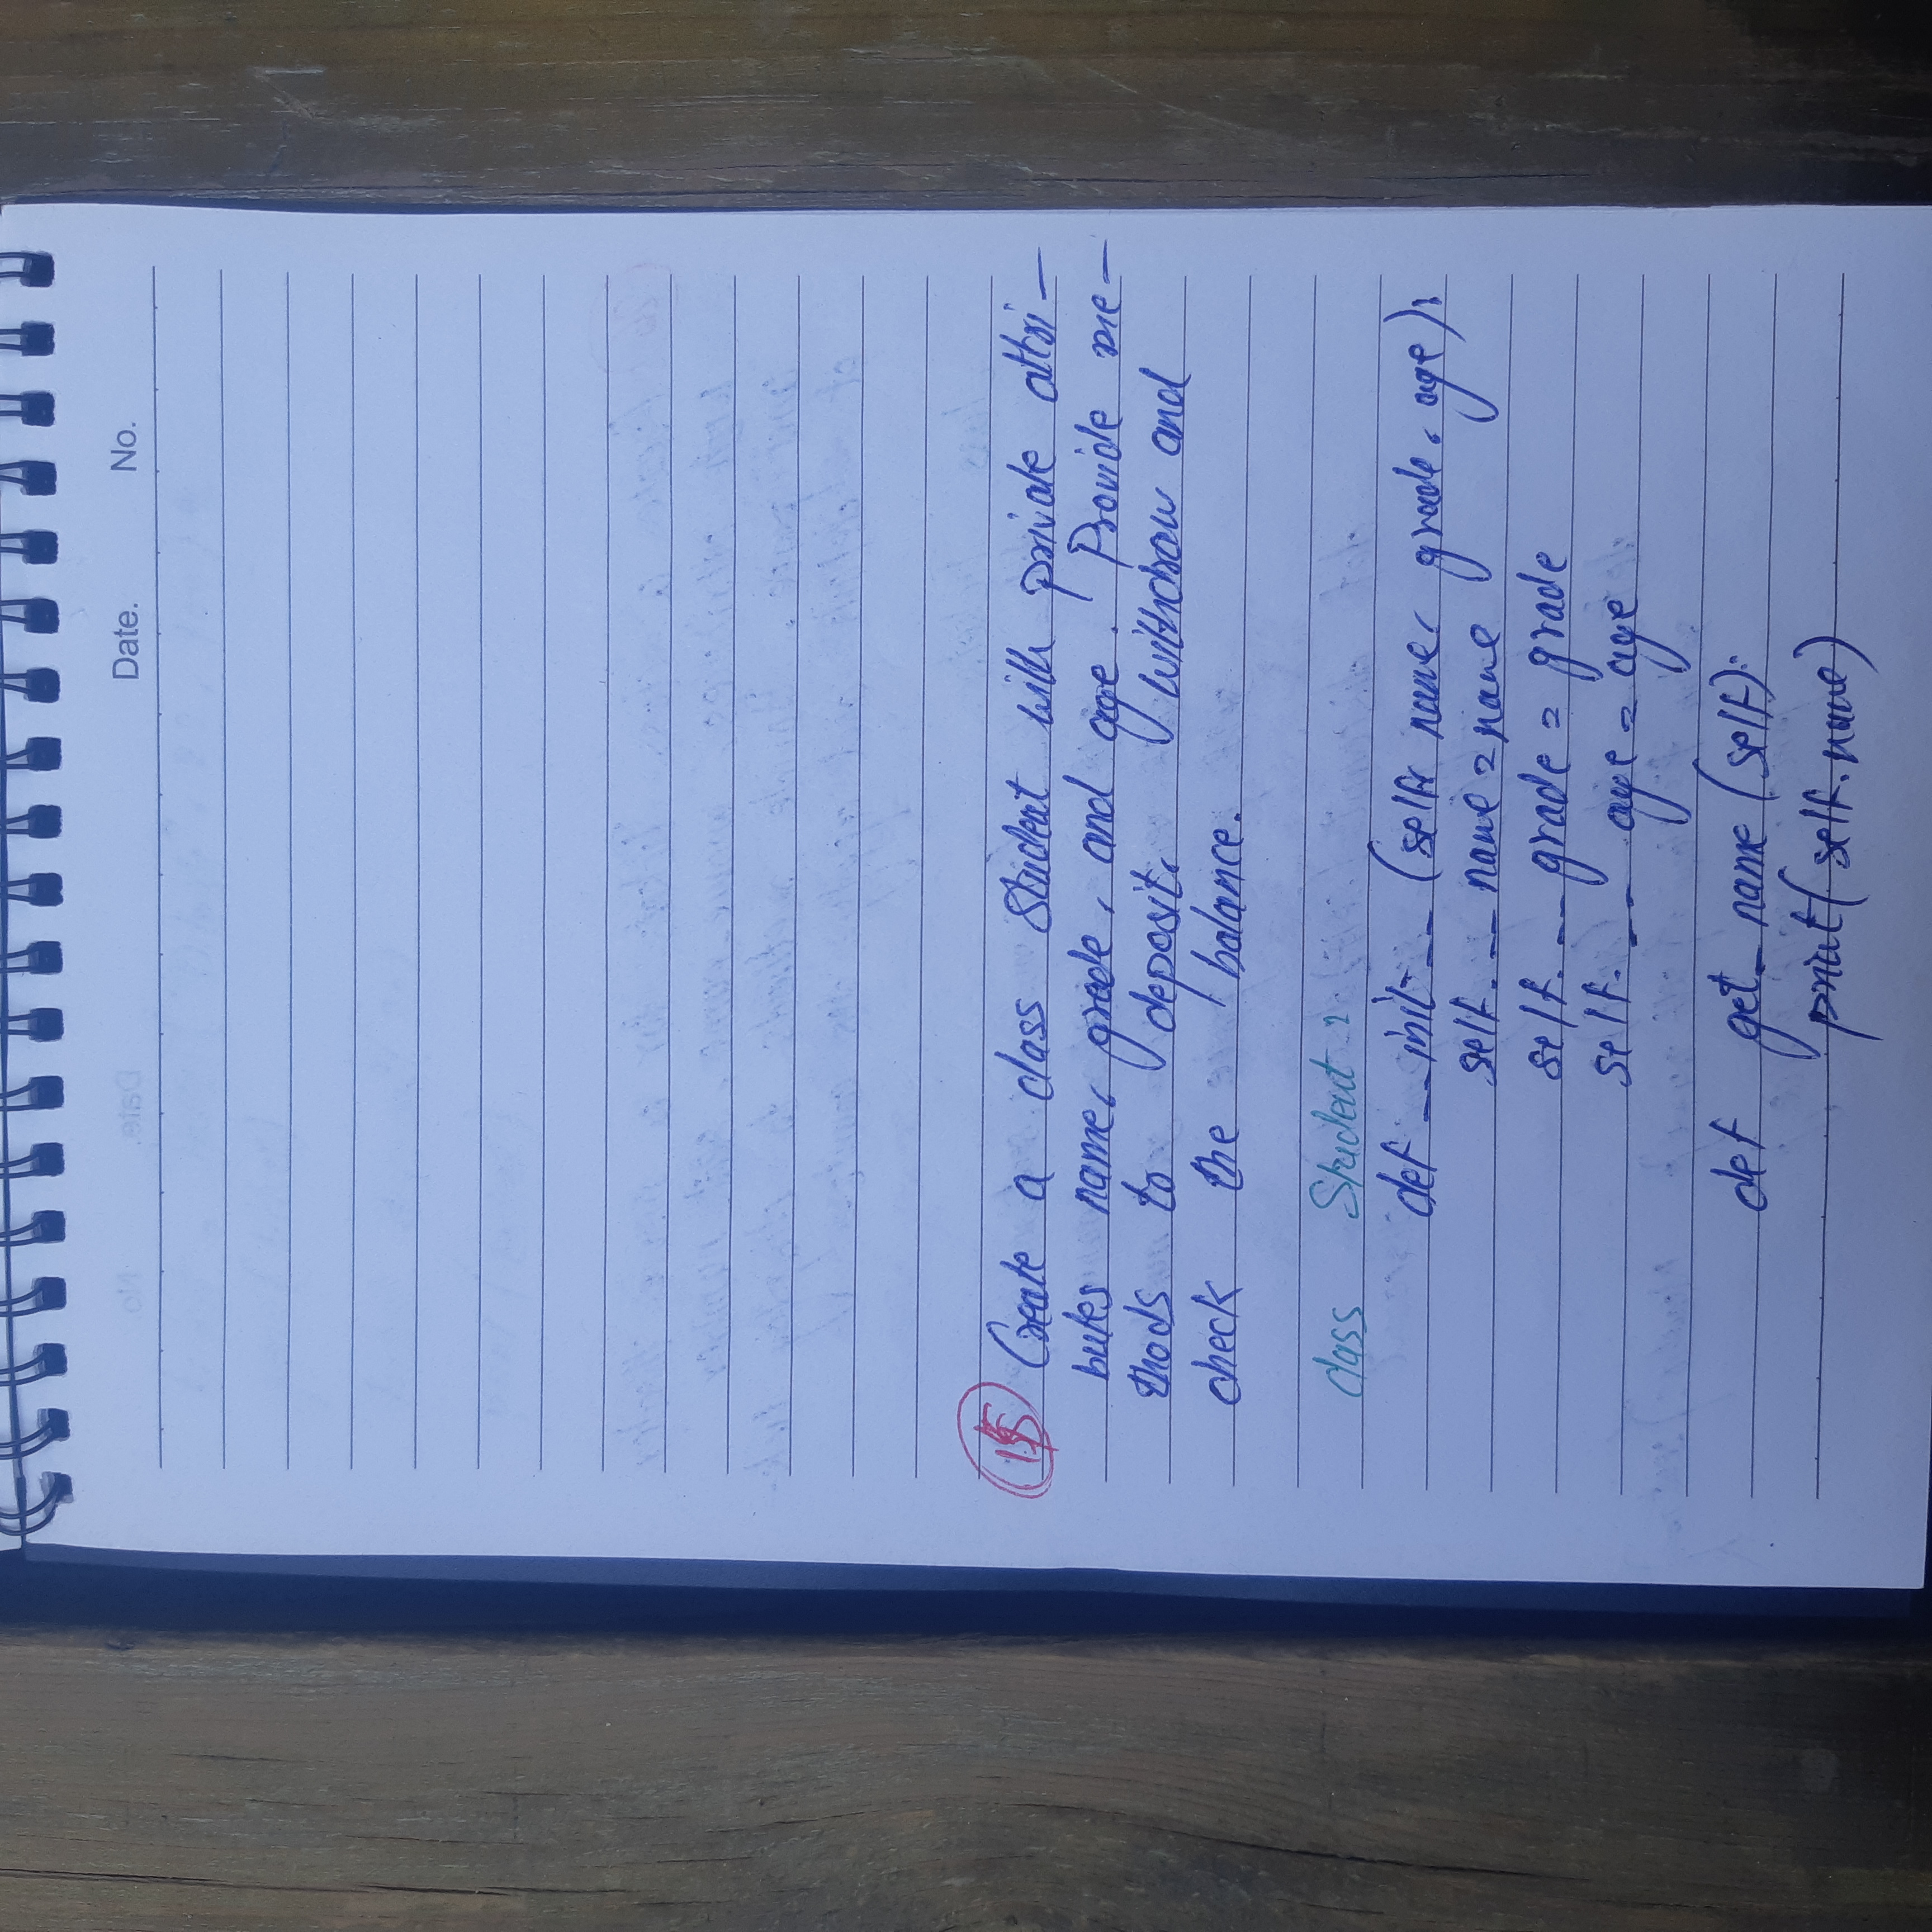 Date. No.
15 Create a class Student with private attri-
butes name, grade, and age. Provide me-
thods to deposit, withdraw and
check the balance.
class Student:
def __init__(self, name, grade, age):
self.__name = name
self.__grade = grade
self.__age = age
def get_name(self):
print(self.name)